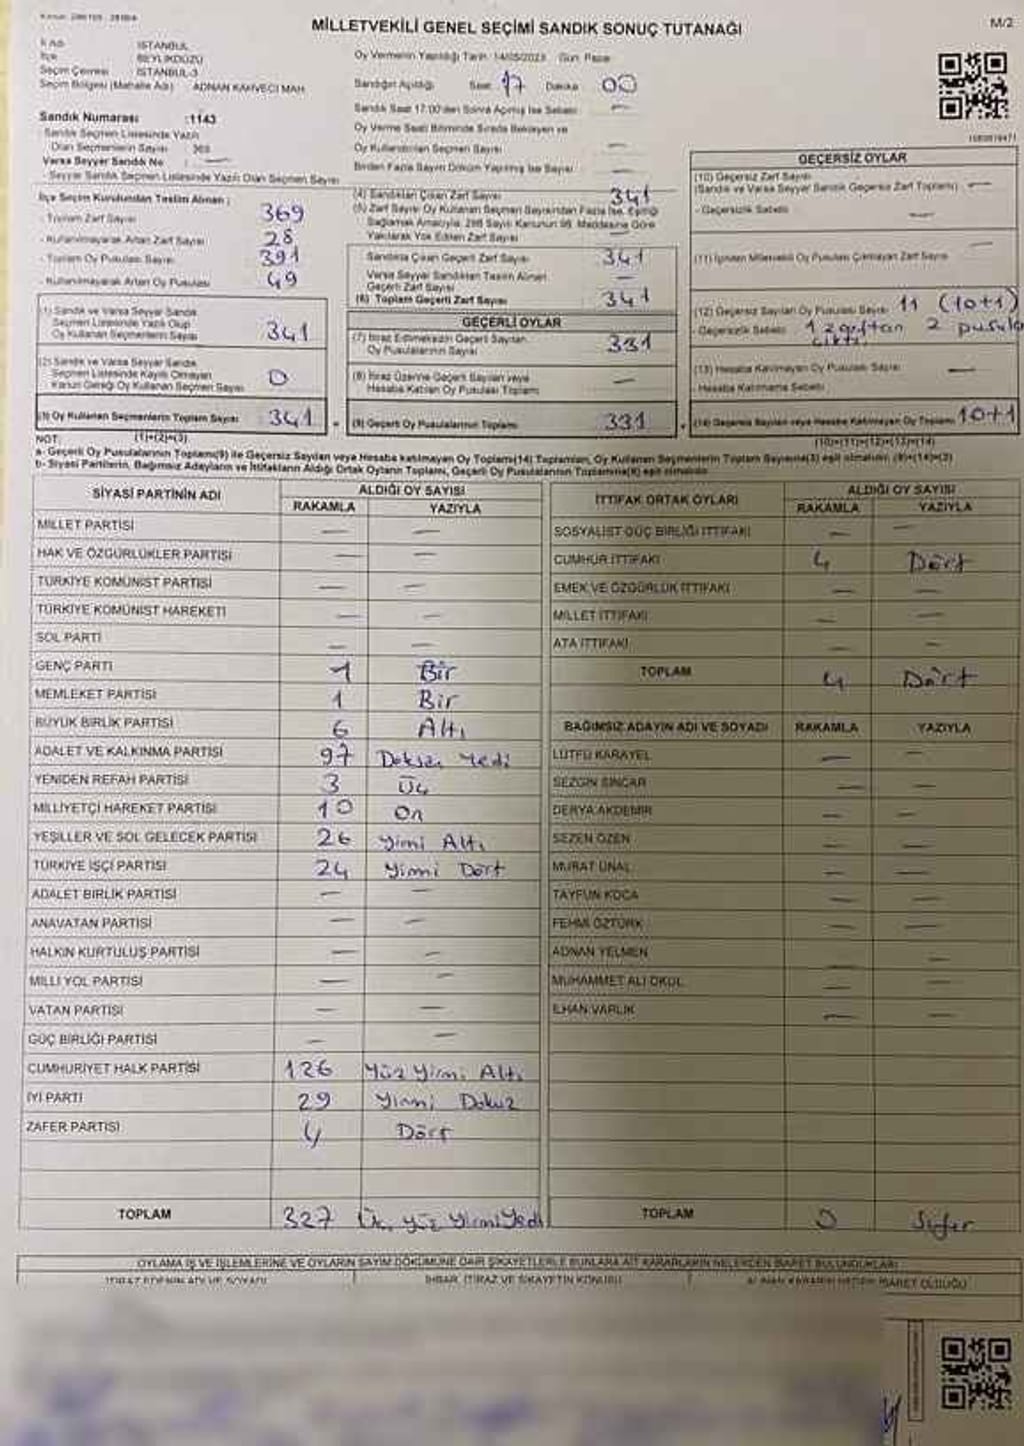 MİLLETVEKİLİ GENEL SEÇİMİ SANDIK SONUÇ TUTANAĞI
M/2
İl Adı İSTANBUL
İlçe BEYLİKDÜZÜ
Seçim Çevresi İSTANBUL-3
Seçim Bölgesi (Mahalle Adı) ADNAN KAHVECİ MAH.
Oy Vermenin Yapıldığı Tarih 14/05/2023 Gün Pazar
Sandığın Açıldığı Saat 17 Dakika 00
Sandık Saat 17:00'den Sonra Açılmış İse Sebebi —
Oy Verme Saati Bitiminde Sırada Bekleyen ve
Oy Kullandırılan Seçmen Sayısı —
Birden Fazla Sayım Döküm Yapılmış İse Sayısı —
Sandık Numarası :1143
Sandık Seçmen Listesinde Yazılı
Olan Seçmenlerin Sayısı 369
Varsa Seyyar Sandık No : —
- Seyyar Sandık Seçmen Listesinde Yazılı Olan Seçmen Sayısı
İlçe Seçim Kurulundan Teslim Alınan :
- Toplam Zarf Sayısı 369
- Kullanılmayarak Artan Zarf Sayısı 28
- Toplam Oy Pusulası Sayısı 391
- Kullanılmayarak Artan Oy Pusulası 49
(1) Sandık ve Varsa Seyyar Sandık
Seçmen Listesinde Yazılı Olup
Oy Kullanan Seçmenlerin Sayısı 341
(2) Sandık ve Varsa Seyyar Sandık
Seçmen Listesinde Kayıtlı Olmayan
Kanun Gereği Oy Kullanan Seçmen Sayısı 0
(3) Oy Kullanan Seçmenlerin Toplam Sayısı 341
(1)+(2)=(3)
(4) Sandıktan Çıkan Zarf Sayısı 341
(5) Zarf Sayısı Oy Kullanan Seçmen Sayısından Fazla İse, Eşitliği
Sağlamak Amacıyla, 298 Sayılı Kanunun 98. Maddesine Göre
Yakılarak Yok Edilen Zarf Sayısı
Sandıkta Çıkan Geçerli Zarf Sayısı 341
Varsa Seyyar Sandıktan Teslim Alınan
Geçerli Zarf Sayısı —
(6) Toplam Geçerli Zarf Sayısı 341
GEÇERLİ OYLAR
(7) İtiraz Edilmeksizin Geçerli Sayılan
Oy Pusulalarının Sayısı 331
(8) İtiraz Üzerine Geçerli Sayılan veya
Hesaba Katılan Oy Pusulaları Toplamı —
(9) Geçerli Oy Pusulalarının Toplamı 331
GEÇERSİZ OYLAR
(10) Geçersiz Zarf Sayısı
(Sandık ve Varsa Seyyar Sandık Geçersiz Zarf Toplamı) —
- Geçersizlik Sebebi —
(11) İçinden Milletvekili Oy Pusulası Çıkmayan Zarf Sayısı —
(12) Geçersiz Sayılan Oy Pusulası Sayısı 11 (10+1)
- Geçersizlik Sebebi 1 zarftan 2 pusula
çıktı.
(13) Hesaba Katılmayan Oy Pusulası Sayısı —
- Hesaba Katılmama Sebebi
(14) Geçersiz Sayılan veya Hesaba Katılmayan Oy Toplamı 10+1
(10)+(11)+(12)+(13)=(14)
NOT:
a- Geçerli Oy Pusulalarının Toplamı(9) ile Geçersiz Sayılan veya Hesaba katılmayan Oy Toplamı(14) Toplamları, Oy Kullanan Seçmenlerin Toplam Sayısına(3) eşit olmalıdır. (9)+(14)=(3)
b- Siyasi Partilerin, Bağımsız Adayların ve İttifakların Aldığı Ortak Oyların Toplamı, Geçerli Oy Pusulalarının Toplamına(9) eşit olmalıdır.
SİYASİ PARTİNİN ADI ALDIĞI OY SAYISI
RAKAMLA YAZIYLA
MİLLET PARTİSİ — —
HAK VE ÖZGÜRLÜKLER PARTİSİ — —
TÜRKİYE KOMÜNİST PARTİSİ — —
TÜRKİYE KOMÜNİST HAREKETİ — —
SOL PARTİ — —
GENÇ PARTİ 1 Bir
MEMLEKET PARTİSİ 1 Bir
BÜYÜK BİRLİK PARTİSİ 6 Altı
ADALET VE KALKINMA PARTİSİ 97 Doksan Yedi
YENİDEN REFAH PARTİSİ 3 Üç
MİLLİYETÇİ HAREKET PARTİSİ 10 On
YEŞİLLER VE SOL GELECEK PARTİSİ 26 Yirmi Altı
TÜRKİYE İŞÇİ PARTİSİ 24 Yirmi Dört
ADALET BİRLİK PARTİSİ — —
ANAVATAN PARTİSİ — —
HALKIN KURTULUŞ PARTİSİ — —
MİLLİ YOL PARTİSİ — —
VATAN PARTİSİ — —
GÜÇ BİRLİĞİ PARTİSİ — —
CUMHURİYET HALK PARTİSİ 126 Yüz Yirmi Altı
İYİ PARTİ 29 Yirmi Dokuz
ZAFER PARTİSİ 4 Dört
TOPLAM 327 Üç Yüz Yirmi Yedi
İTTİFAK ORTAK OYLARI ALDIĞI OY SAYISI
RAKAMLA YAZIYLA
SOSYALİST GÜÇ BİRLİĞİ İTTİFAKI — —
CUMHUR İTTİFAKI 4 Dört
EMEK VE ÖZGÜRLÜK İTTİFAKI — —
MİLLET İTTİFAKI — —
ATA İTTİFAKI — —
TOPLAM 4 Dört
BAĞIMSIZ ADAYIN ADI VE SOYADI RAKAMLA YAZIYLA
LÜTFÜ KARAYEL — —
SEZGİN SİNCAR — —
DERYA AKDEMİR — —
SEZEN ÖZEN — —
MURAT ÜNAL — —
TAYFUN KOCA — —
FEHMİ ÖZTÜRK — —
ADNAN YELMEN — —
MUHAMMET ALİ OKUL — —
İLHAN VARLIK — —
TOPLAM 0 Sıfır
OYLAMA İŞ VE İŞLEMLERİNE VE OYLARIN SAYIM DÖKÜMÜNE DAİR ŞİKAYETLERLE BUNLARA AİT KARARLARIN NELERDEN İBARET BULUNDUKLARI
İTİRAZ EDENİN ADI VE SOYADI İHBAR, İTİRAZ VE ŞİKAYETİN KONUSU